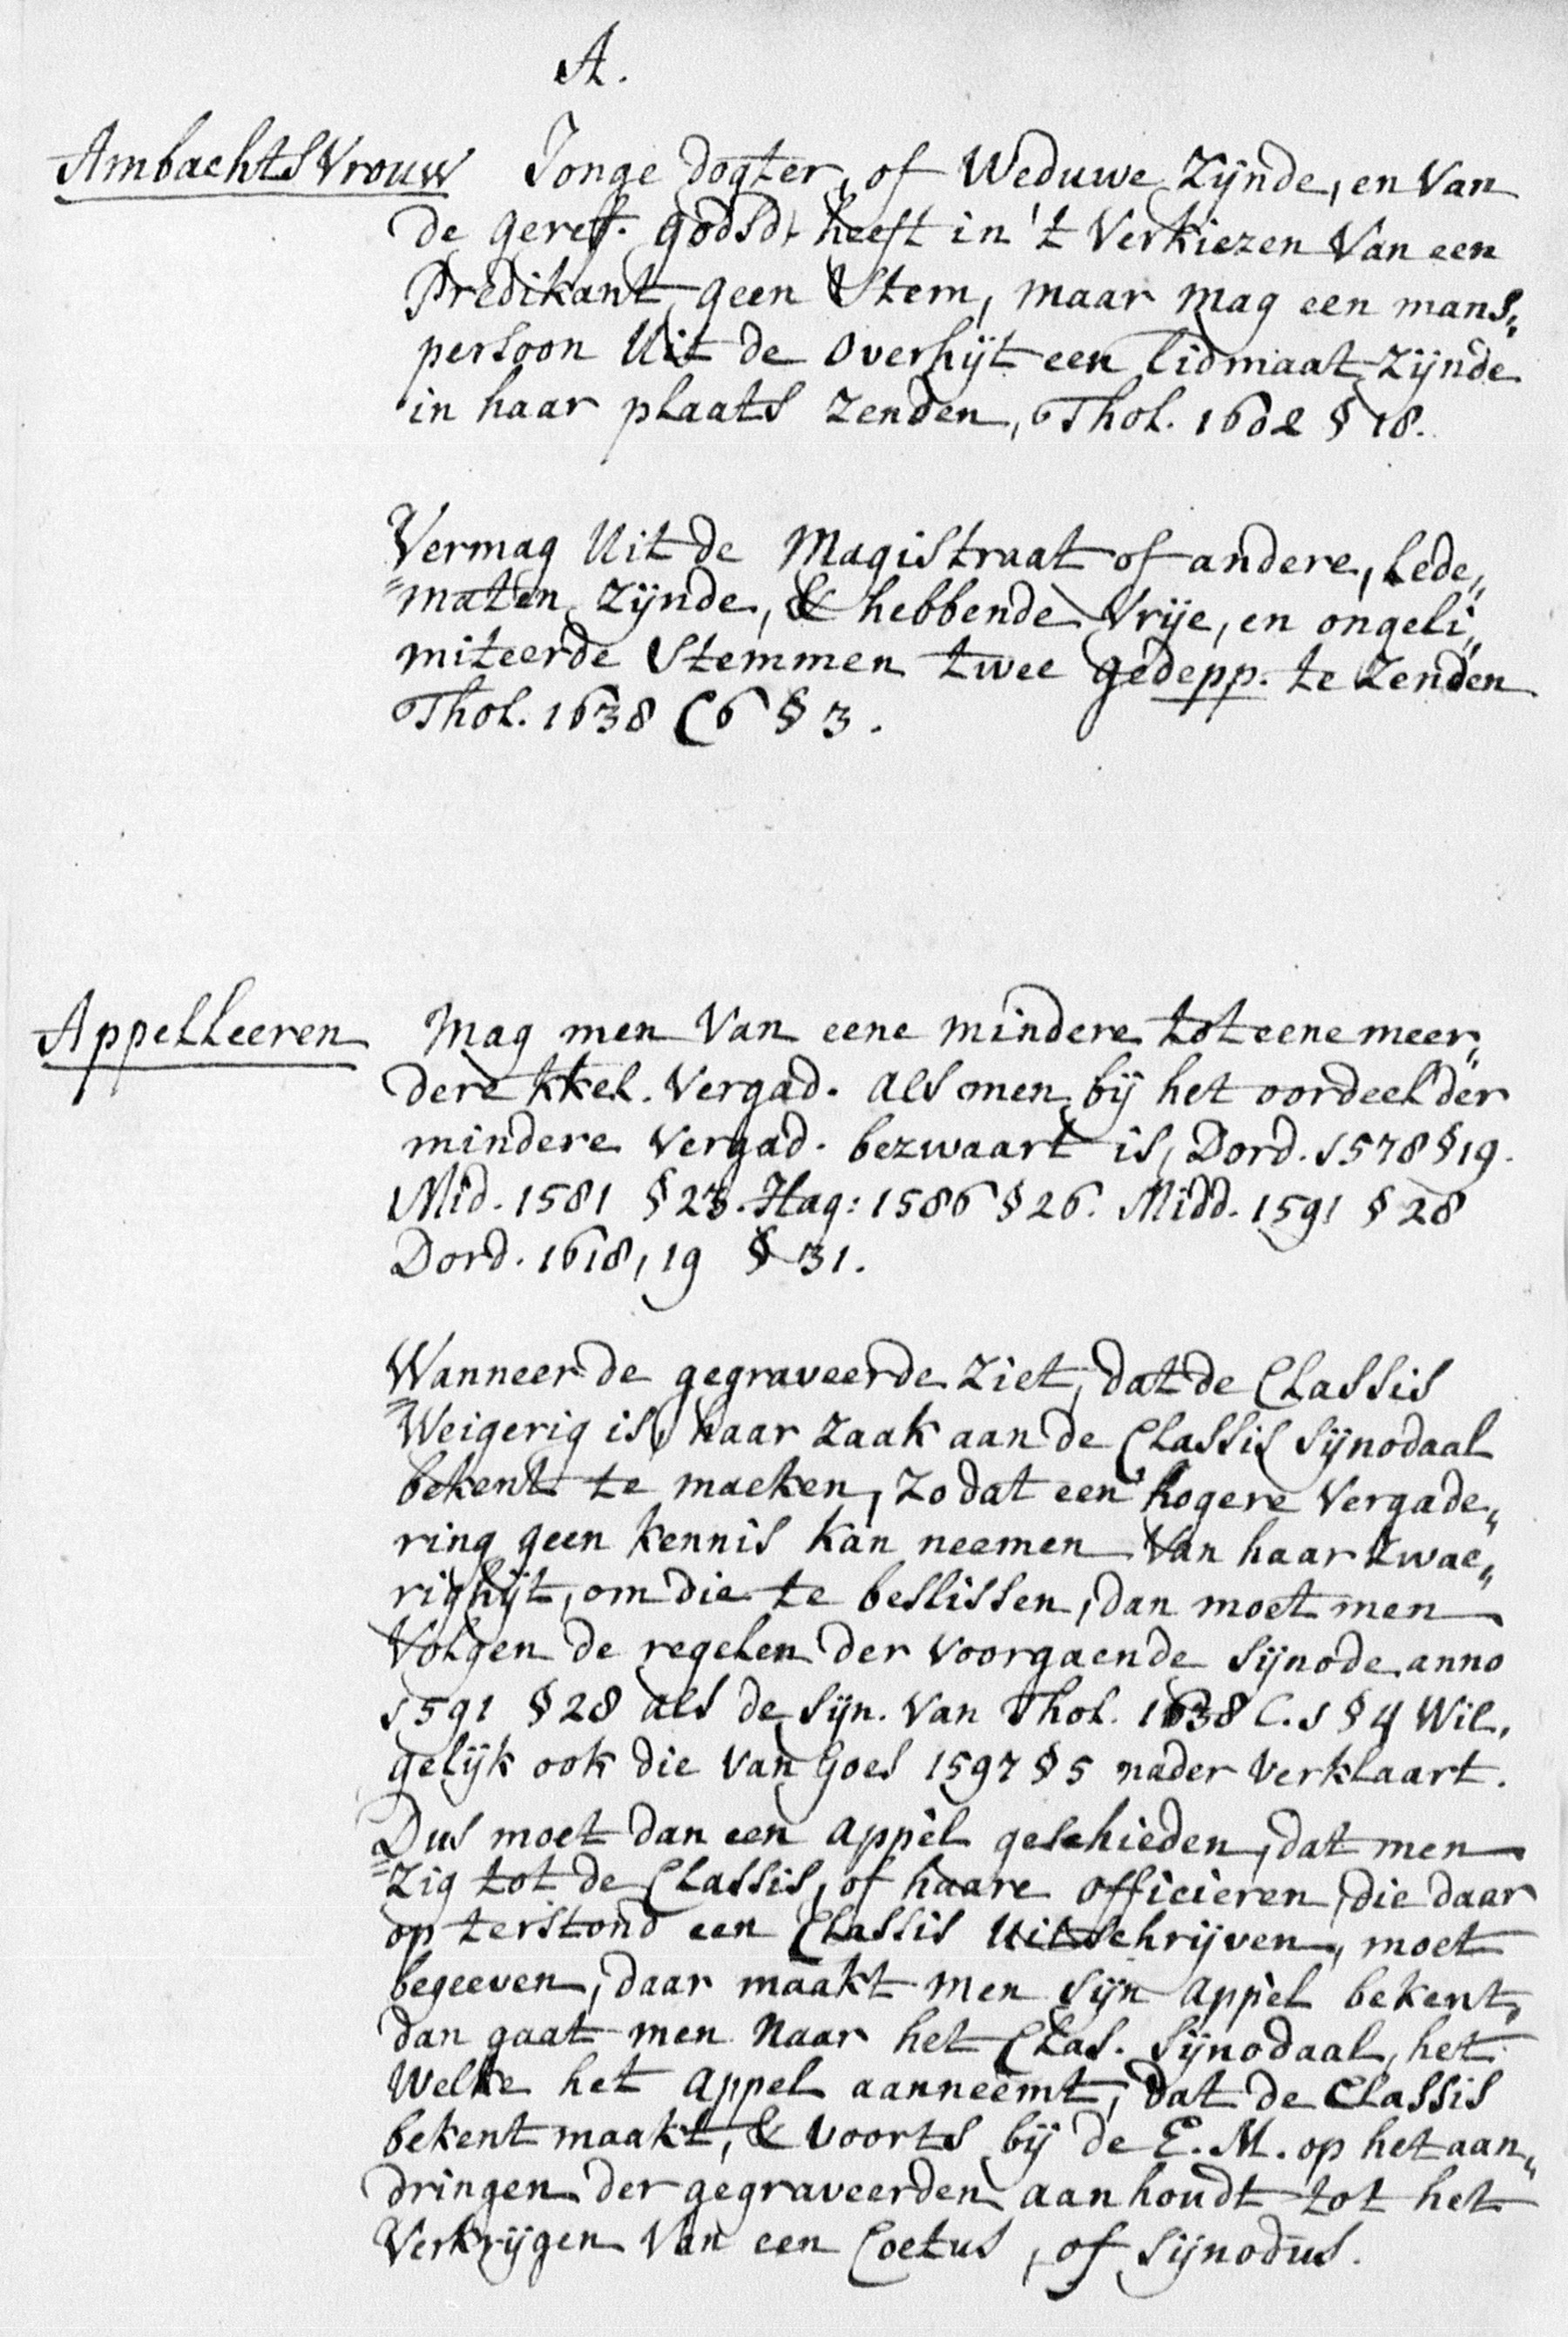 A.
AmbachtsVrouw Jonge dogter, of Weduwe Zijnde, en Van
de geref. godsd. heeft in 't Verkiezen Van een
Predikant geen Stem, maar mag een mans„
persoon Uit de Overhijt een lidmaat Zijnde
in haar plaats Zenden, Thol. 1602 § 18.
Vermag Uit de Magistraat of andere, Lede„
maten Zijnde, & hebbende Vrije, en ongeli„
miteerde Stemmen twee gedepp. te Zenden
Thol. 1638 C 6 § 3.
Appelleeren Mag men Van eene mindere tot eene meer„
dere kkel. Vergad. als men bij het oordeel der
mindere Vergad. bezwaart is, Dord. 1578 § 19.
Mid. 1581 § 23. Hag: 1586 § 26. Midd. 1591 § 28
Dord. 1618, 19 § 31.
Wanneer de gegraveerde Ziet, dat de Classis
Weigerig is, haar Zaak aan de Classis Sijnodaal
bekent te maeken, Zo dat een hogere Vergade„
ring geen kennis kan neemen Van haar Zwae„
righijt, om die te beslissen, dan moet men
Volgen de regelen der voorgaende Sijnode anno
1591 § 28 als de Sijn. Van Thol. 1638 C. 1 § 4 Wil,
gelijk ook die Van Goes 1597 § 5 nader Verklaart.
Dus moet dan een appèl geschieden, dat men
Zig tot de Classis, of haare officieren, die daar
op terstond een Classis Uitschrijven, moet
begeeven, daar maakt men Sijn appèl bekent,
dan gaat men Naar het Clas. Sijnodaal, het
Welke het appel aanneemt, dat de Classis
bekent maakt, & Voorts bij de E. M. op het aan„
dringen der gegraveerden aanhoudt tot het
Verkrijgen Van een Coetus, of Sijnodus.